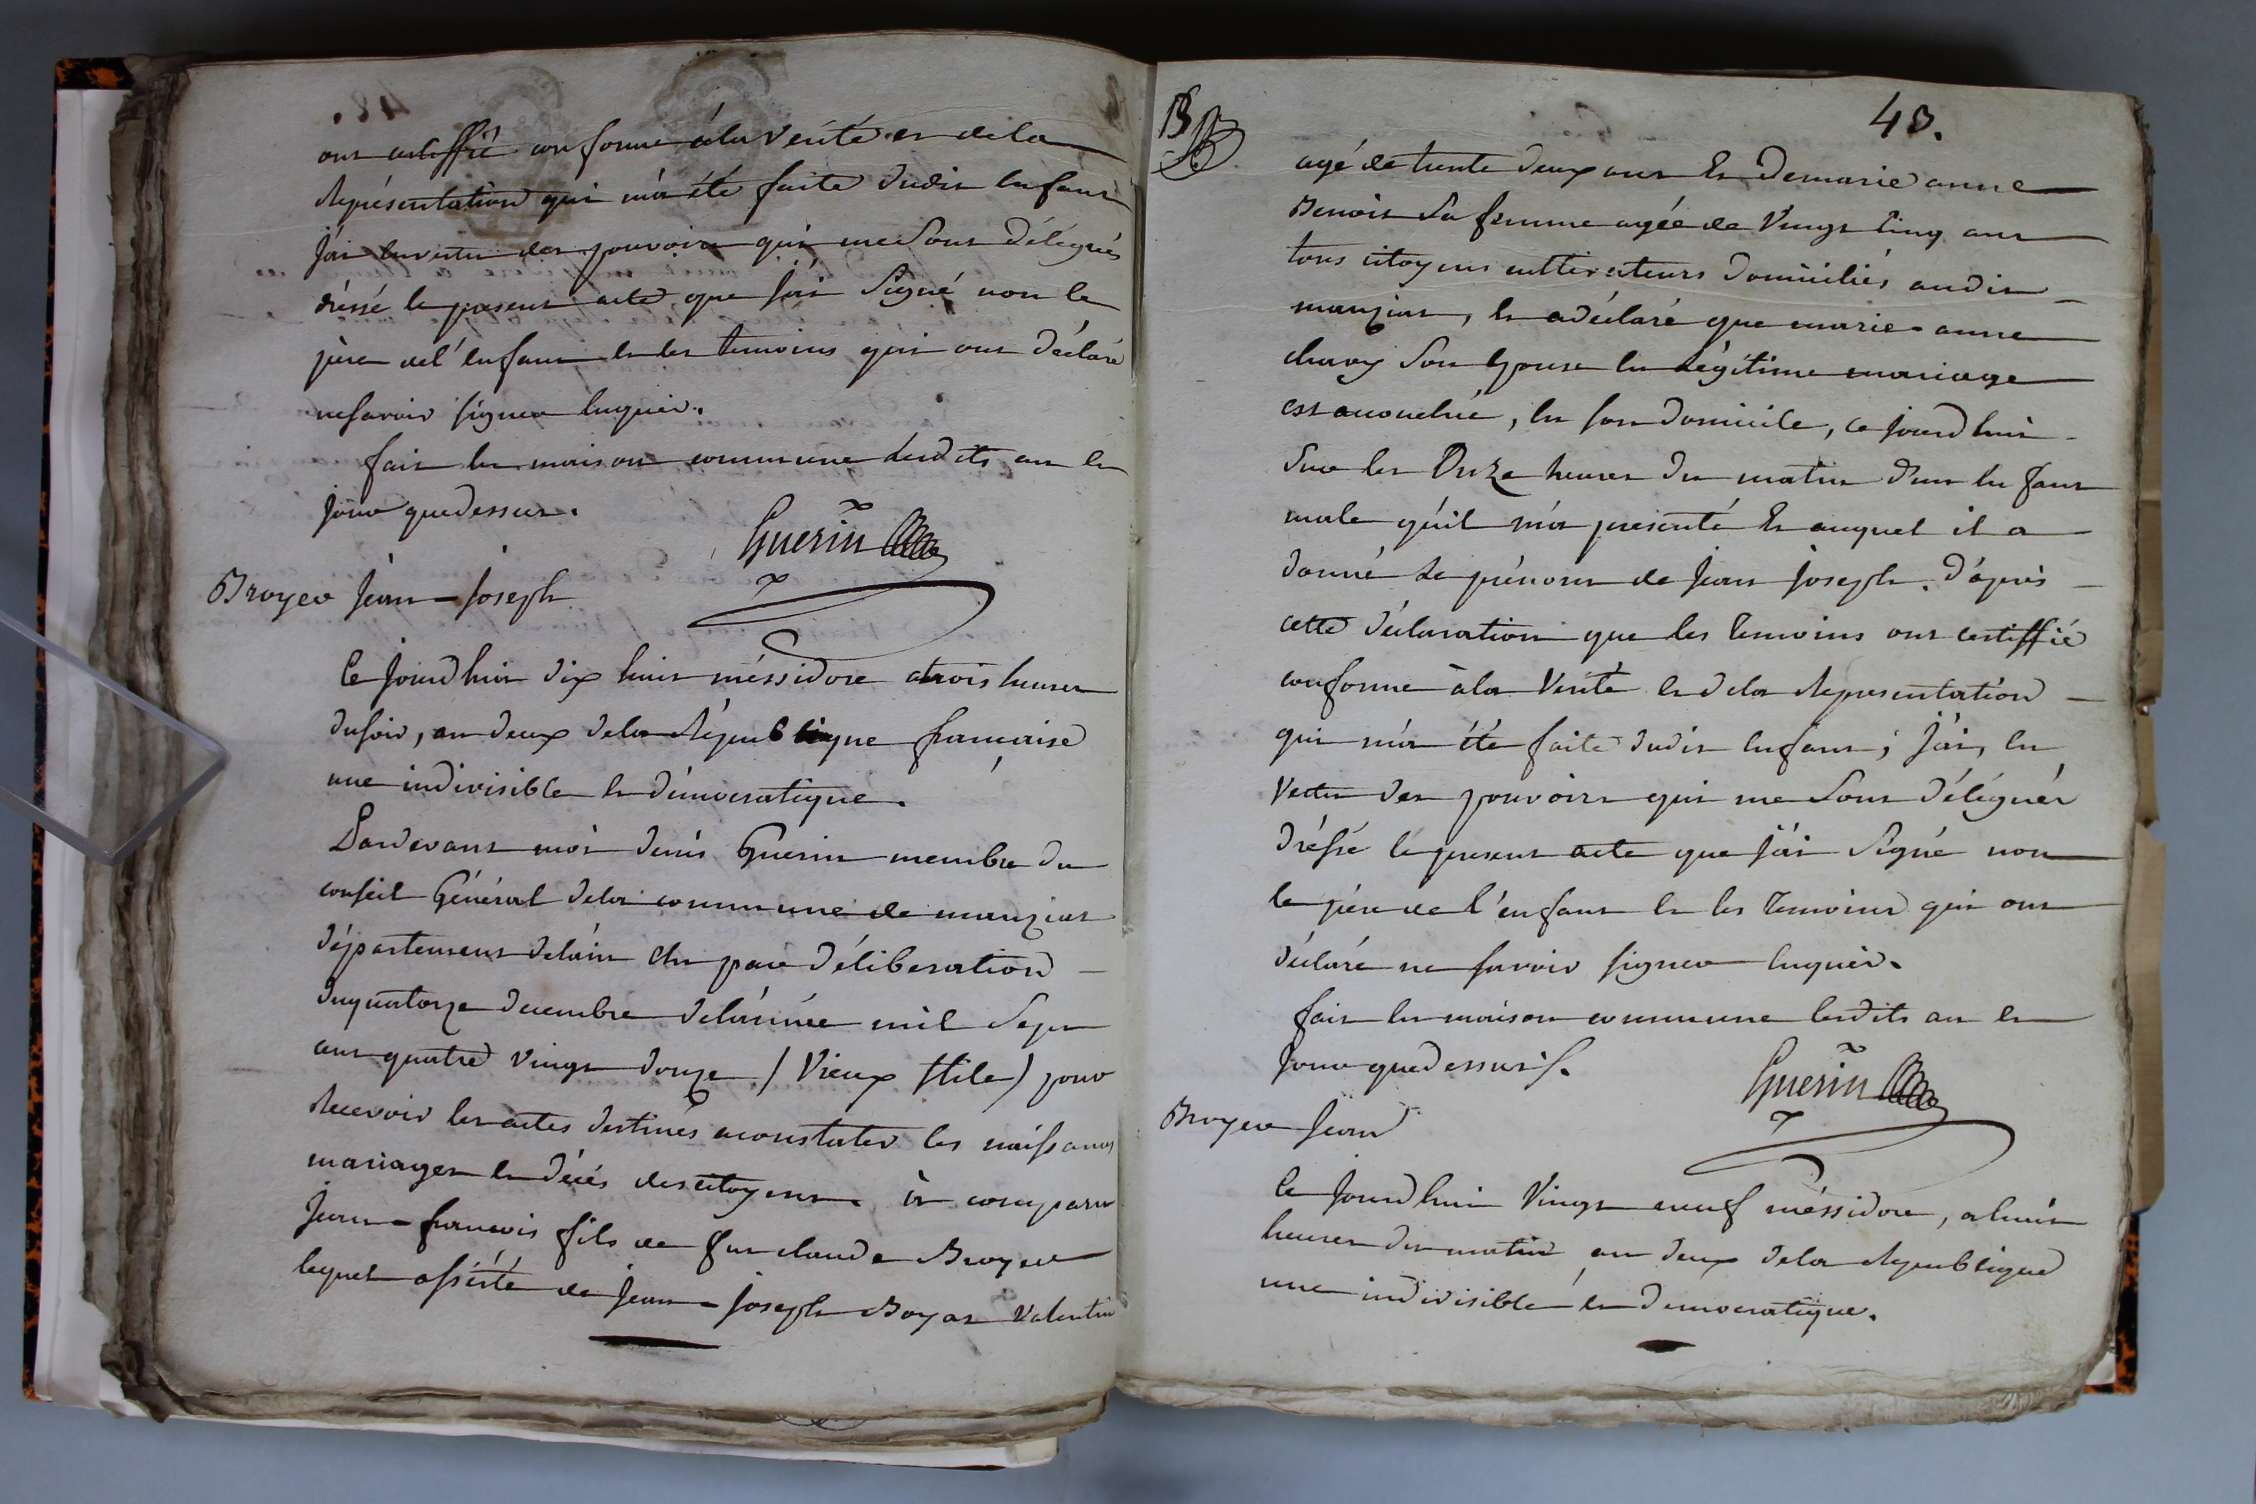 ont certiffié conforme á la vérité et de la
Réprésentation qui m'a été faite dudit enfant
j'ai en vertu des pouvoirs qui me sont délégués
dréssé le present acte que j'ai signé non le
père de l'enfant et les temoins qui ont déclaré
ne savoir signer enquis.
fait en maison commune lesdits an et
jour que dessus.
Guerin
Broyer jean-joseph
Ce jourd'hui dix huit méssidore a trois heures
du soir, an deux de la République française
une indivisible et démocratique.
Pardevant moi denis Guerin membre du
conseil Général de la commune de manziat
département de l'ain élu par déliberation
du quatorze decembre de l'année mil sept
cent quatre vingt douze (vieux stile) pour
Recevoir les actes destinés a constater les naissances
mariages et décés des citoyens. est comparu
jean-francois fils de feu claude Broyer
lequel assisté de jean-joseph Boyat valentin
B
43.
agé de trente deux ans et de marie anne
Benoit sa femme agée de vingt cinq ans
tous citoyens cultivateurs domiciliés audit
manziat, et a déclaré que marie-anne
chavy son epouse en légitime mariage
est accouchée, en son domicile, ce jourd'hui
sur les Onze heures du matin d'un enfant
male qu'il m'a presenté et auquel il a
donné le prénoms de jean joseph. d'après
cette déclaration que les temoins ont certiffié
conforme à la vérité et de la Representation
qui m'a été faite dudit enfant; j'ai, en
vertu des pouvoirs qui me sont délégués
dréssé le present acte que j'ai signé non
le père de l'enfant et les temoins qui ont
déclaré ne savoir signer enquis.
fait en maison commune lesdits an et
jour que dessus.
Guerin
Broyer jean
Ce jourd'hui vingt neuf méssidore, a huit
heures du matin an deux de la Republique
une indivisible et democratique.